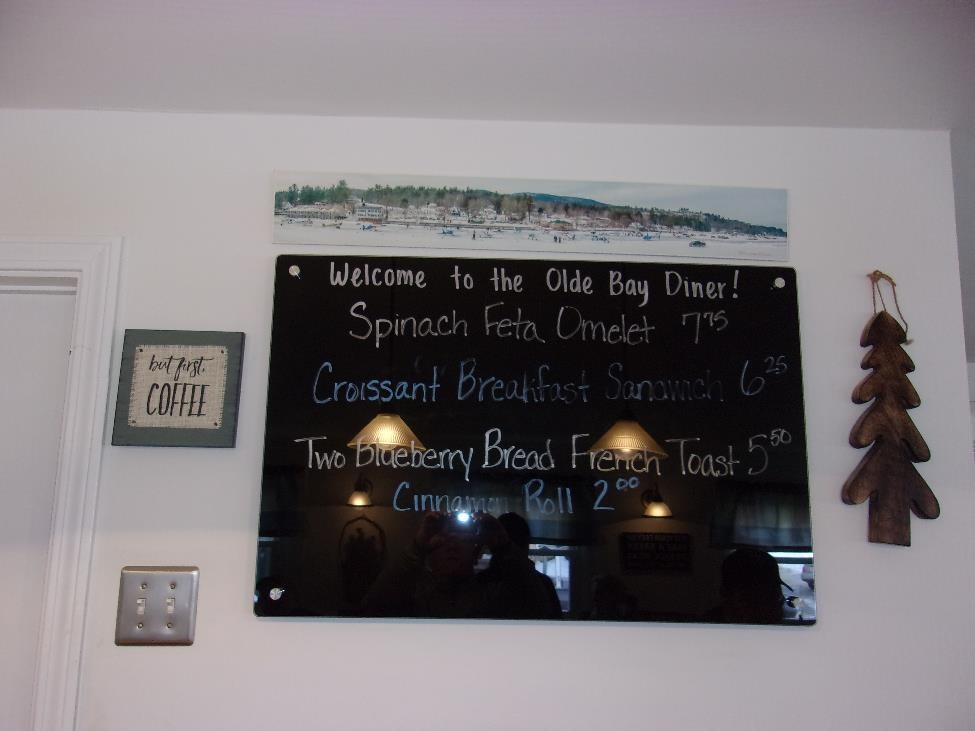 Welcome to the Olde Bay Diner!
Spinach Feta Omelet 7 75
Croissant Breakfast Sandwich 6 25
Two Blueberry Bread French Toast 5 50
Cinnamon Roll 2 00
but first,
COFFEE